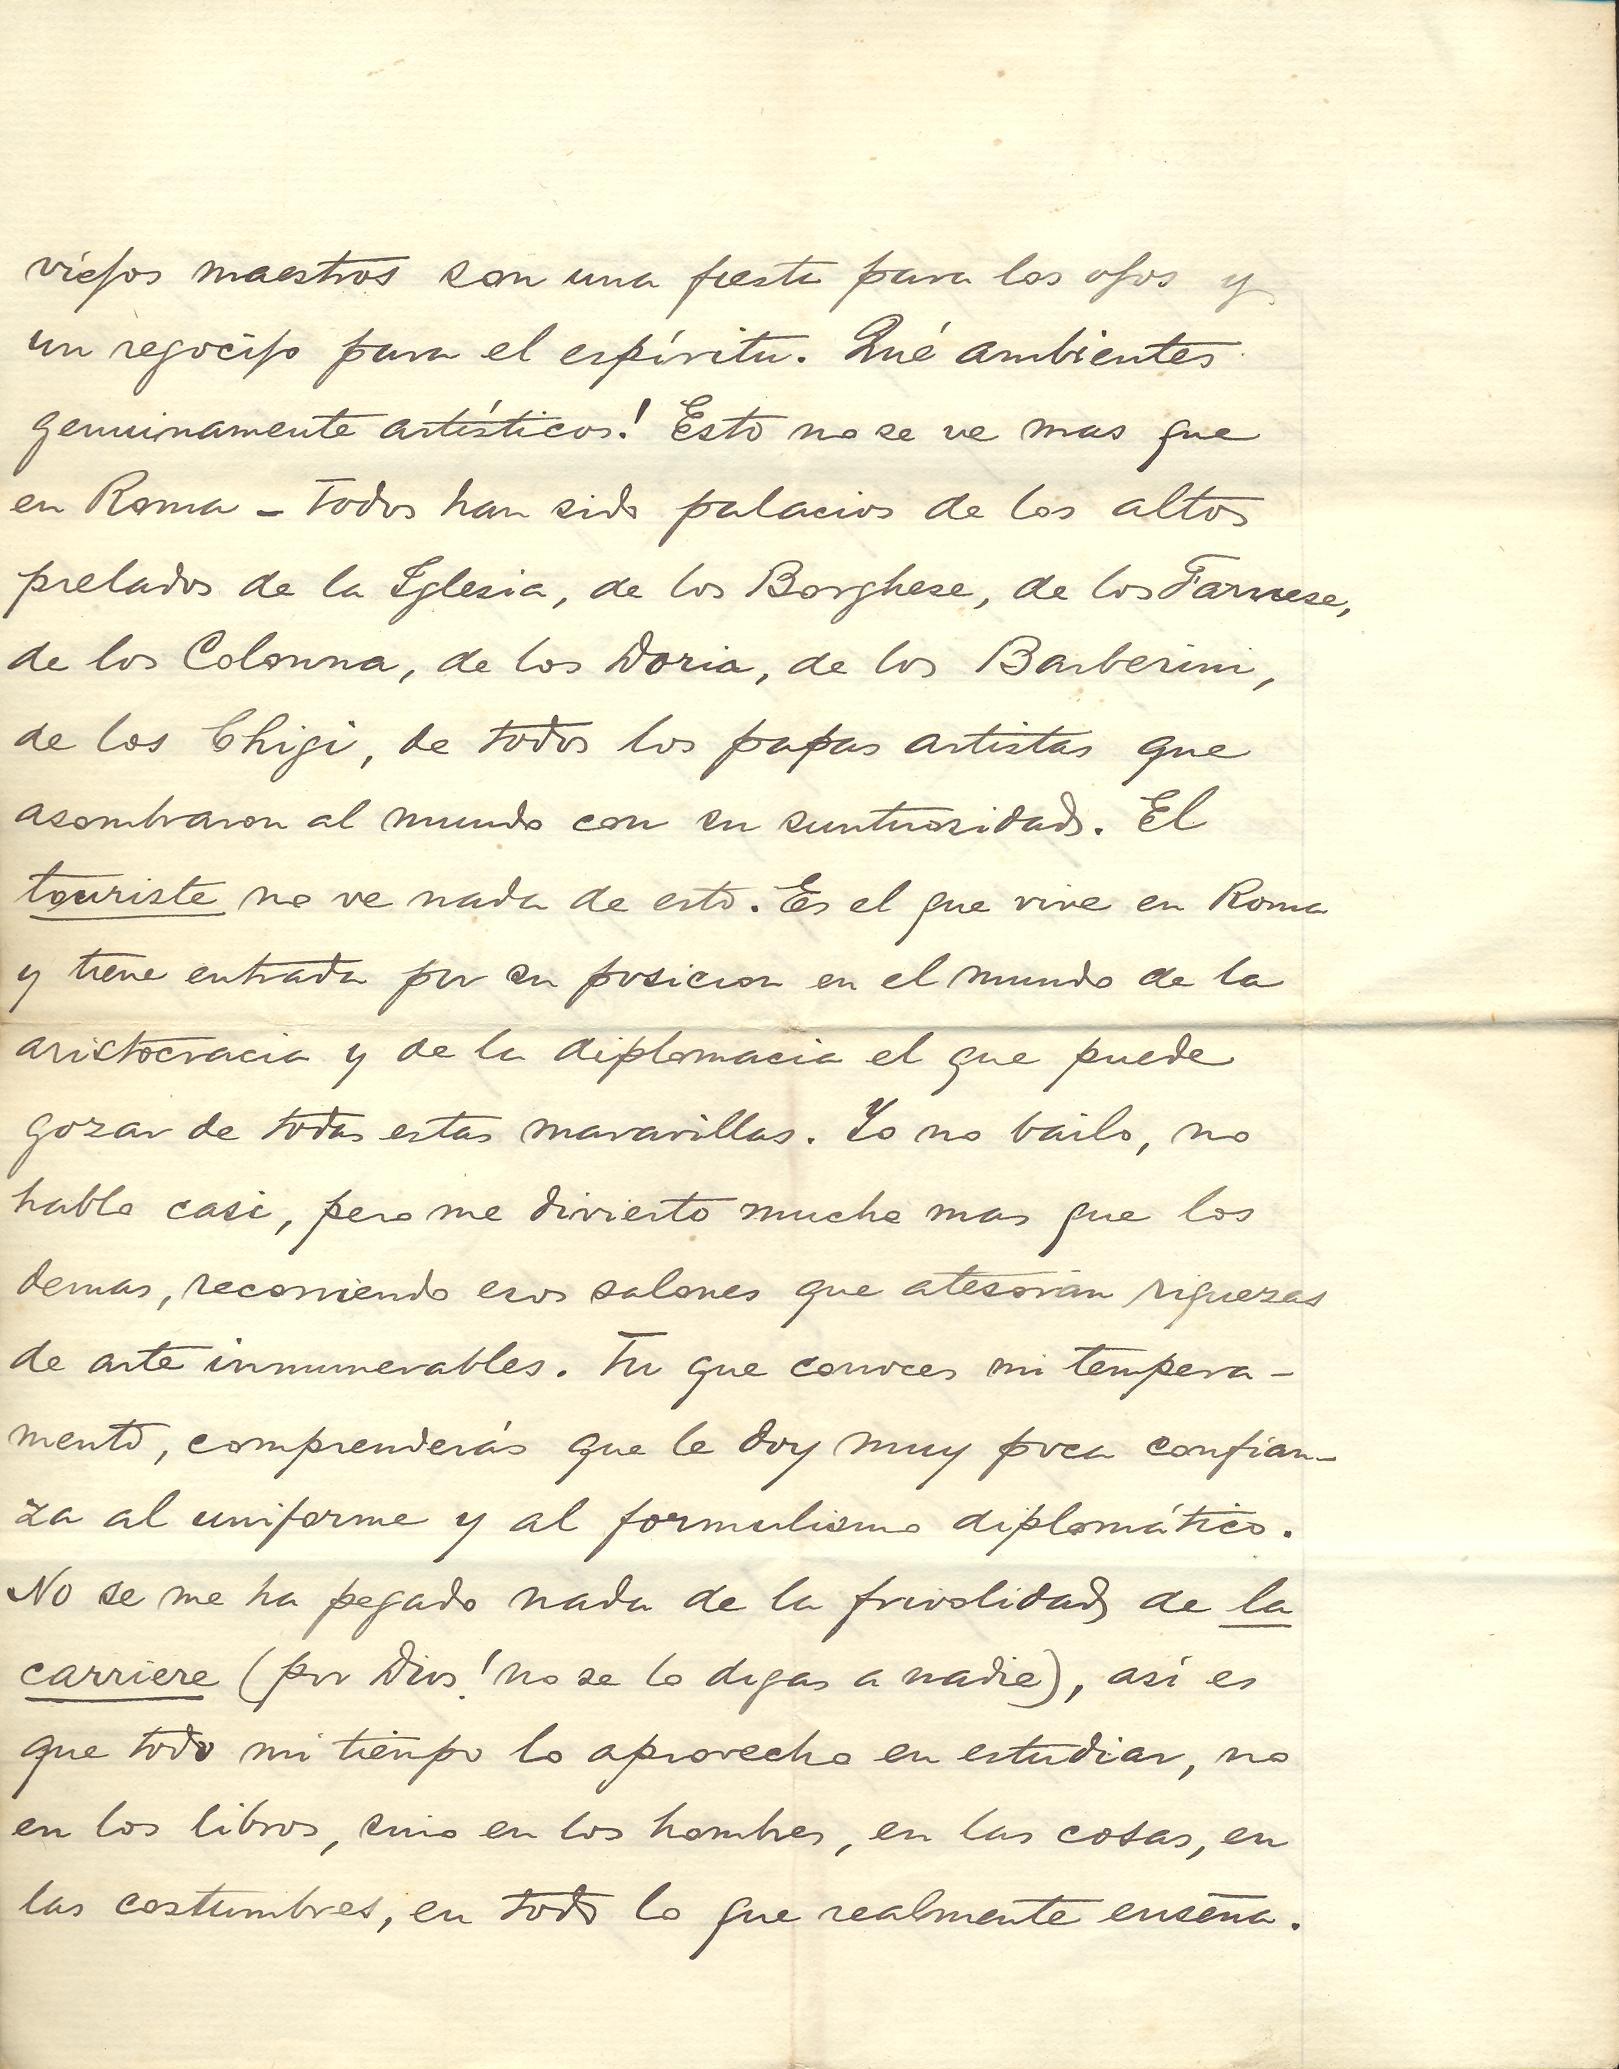 viejos maestros son una fiesta para los ojos y
un regocijo para el espíritu. Qué ambientes
genuinamente artísticos! Esto no se ve mas que
en Roma – Todos han sido palacios de los altos
prelados de la Iglesia, de los Borghese, de los Farnese,
de los Colonna, de los Doria, de los Barberini,
de los Chigi, de todos los papas artistas que
asombraron al mundo con su suntuosidad. El
touriste no ve nada de esto. Es el que vive en Roma
y tiene entrada por su posicion en el mundo de la
aristocracia y de la diplomacia el que puede
gozar de todas estas maravillas. Yo no bailo, no
hablo casi, pero me divierto mucho mas que los
demas, recorriendo esos salones que atesoran riquezas
de arte innumerables. Tu que conoces mi tempera-
mento, comprenderás que le doy muy poca confian-
za al uniforme y al formulismo diplomático.
No se me ha pegado nada de la frivolidad de la
carriere (por Dios! no se lo digas a nadie), así es
que todo mi tiempo lo aprovecho en estudiar, no
en los libros, sino en los hombres, en las cosas, en
las costumbres, en todo lo que realmente enseña.